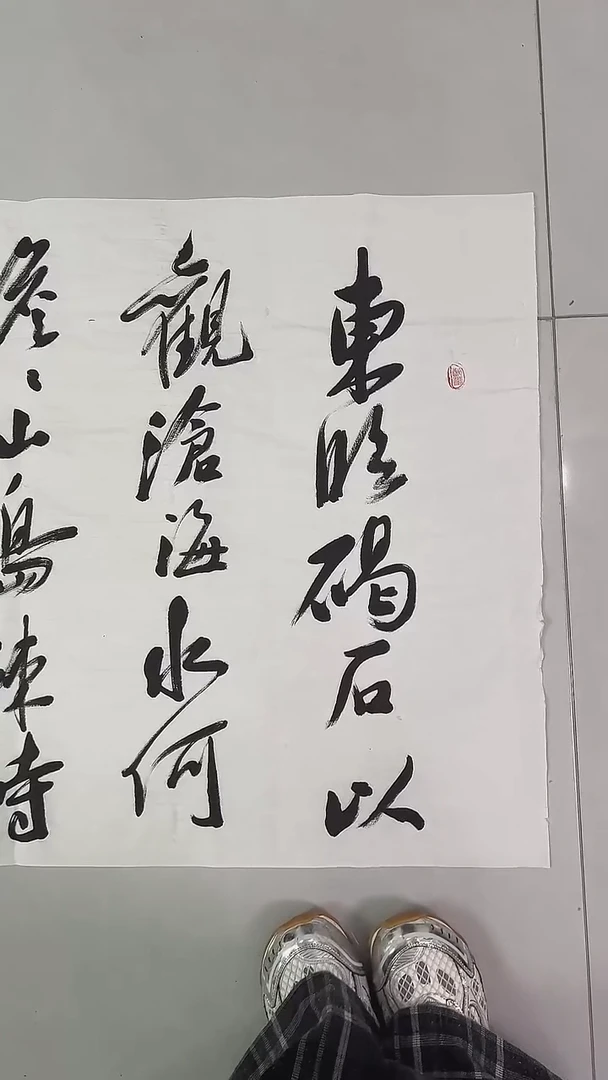 東臨碣石以
觀滄海水何
澹〻山島竦峙